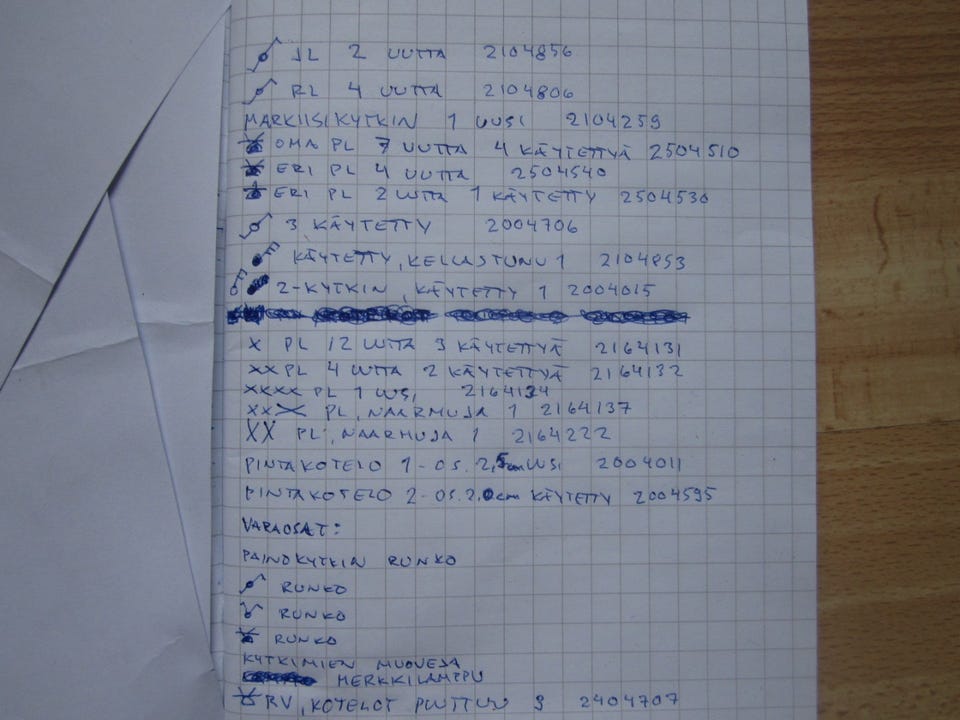 JL 2 UUTTA 2104856
RL 4 UUTTA 2104806
MARKIISIKYTKIN 1 UUSI 2104259
OMA PL 7 UUTTA 4 KÄYTETTYÄ 2504510
ERI PL 4 UUTTA 2504540
ERI PL 2 UUTTA 1 KÄYTETTY 2504530
3 KÄYTETTY 2004706
KÄYTETTY, KELLASTUNU 1 2104853
2-KYTKIN, KÄYTETTY 1 2004015
X PL 12 UUTTA 3 KÄYTETTYÄ 2164131
XX PL 4 UUTTA 2 KÄYTETTYÄ 2164132
XXXX PL 1 UUSI 2164134
XXX PL, NAARMUJA 1 2164137
XX PL, NAARMUJA 1 2164222
PINTAKOTELO 1-OS. 2,5cm UUSI 2004011
PINTAKOTELO 2-OS. 2,0cm KÄYTETTY 2004595
VARAOSAT:
PAINOKYTKIN RUNKO
RUNKO
RUNKO
RUNKO
KYTKIMIEN MUOVEJA
MERKKILAMPPU
RV, KOTELOT PUUTTUU 3 2404707